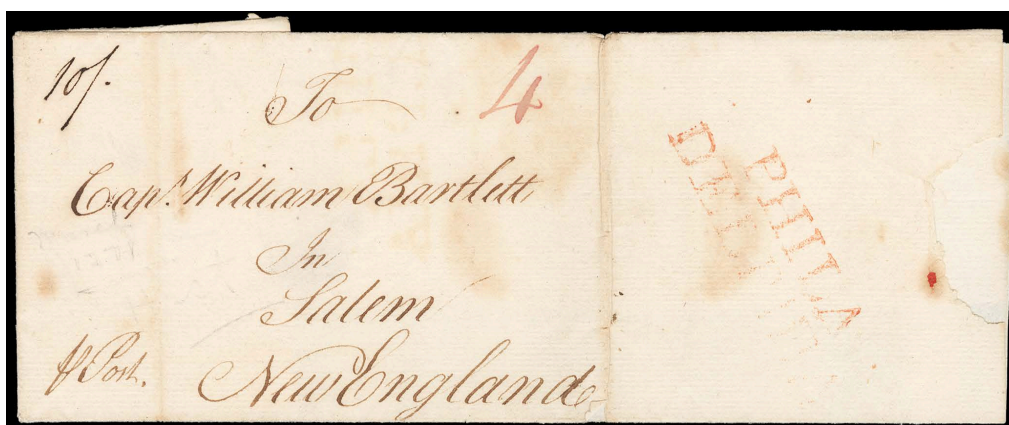 10/.
To
4
Capt. William Bartlett
In
Salem
New England
⅌ Post.
PHILA
DEC